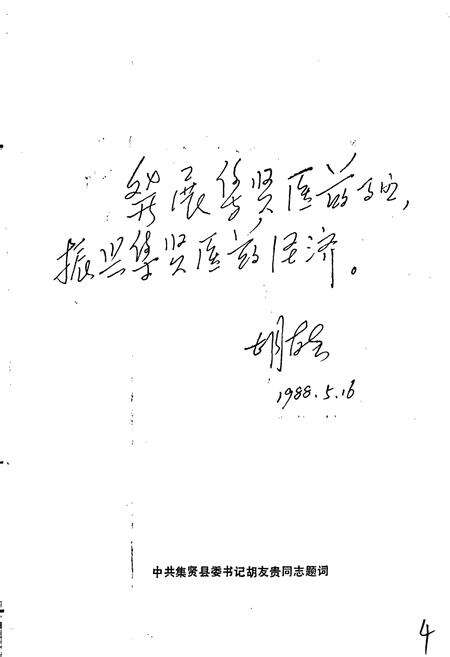 發展集贤医药事业,
振兴集贤医药经济。
胡友贵
1988.5.16
中共集贤县委书记胡友贵同志题词
4